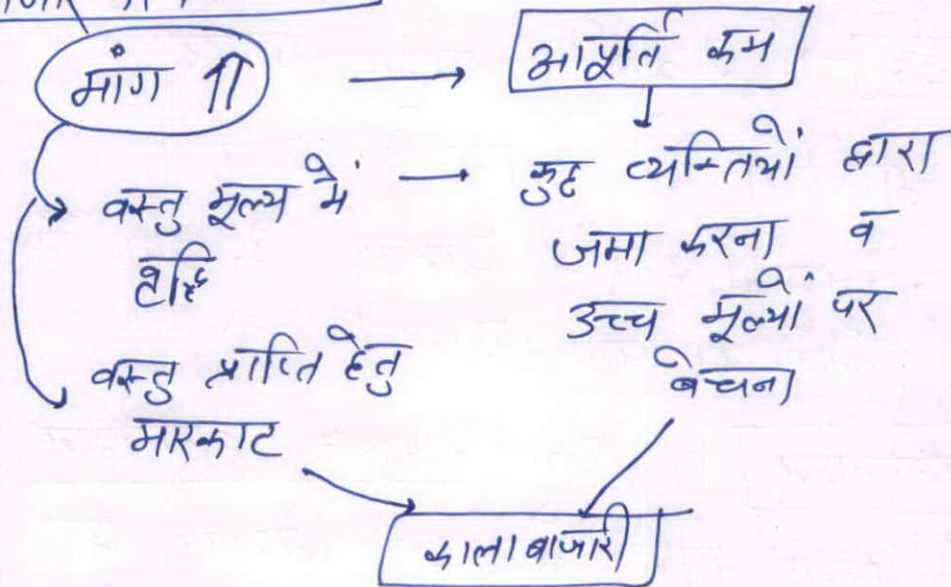 मांग ⇑ → आपूर्ति कम
वस्तु मूल्य में → कुछ व्यक्तियों द्वारा
वृद्धि
जमा करना व
उच्च मूल्यों पर
बेचना
वस्तु प्राप्ति हेतु
मारकाट
कालाबाजारी